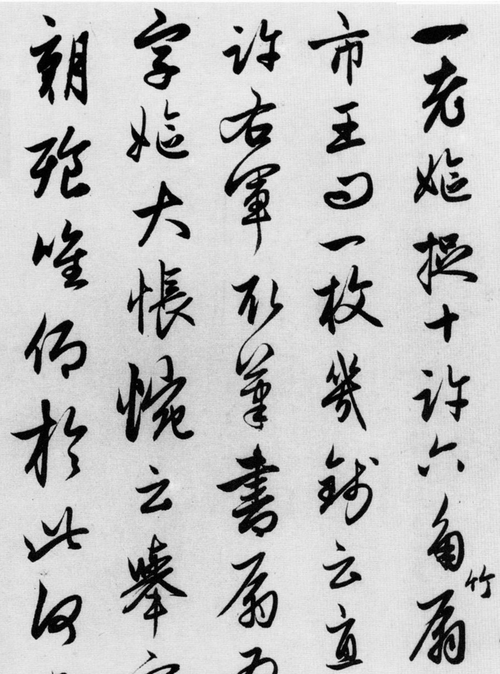 一老嫗捉十許六角竹扇
市王問一枚幾錢云直
許右軍取筆書扇
字嫗大悵惋云舉
朝飧唯仰於此何